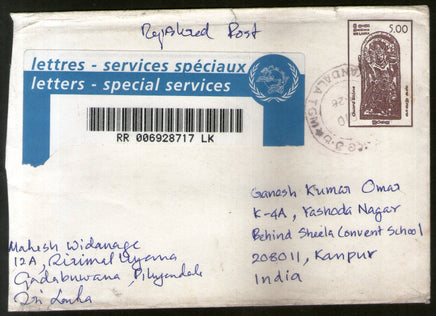 Registered Post
5.00
lettres - services spéciaux
letters - special services
RR 006928717 LK
Guard Stone
Ganesh Kumar Omar
K-4A, Yashoda Nagar
Behind Sheela Convent School
208011, Kanpur
India
Mahesh Widanage
12A, Ririmal Uyana
Godabuwana, Piliyandala
Sri Lanka